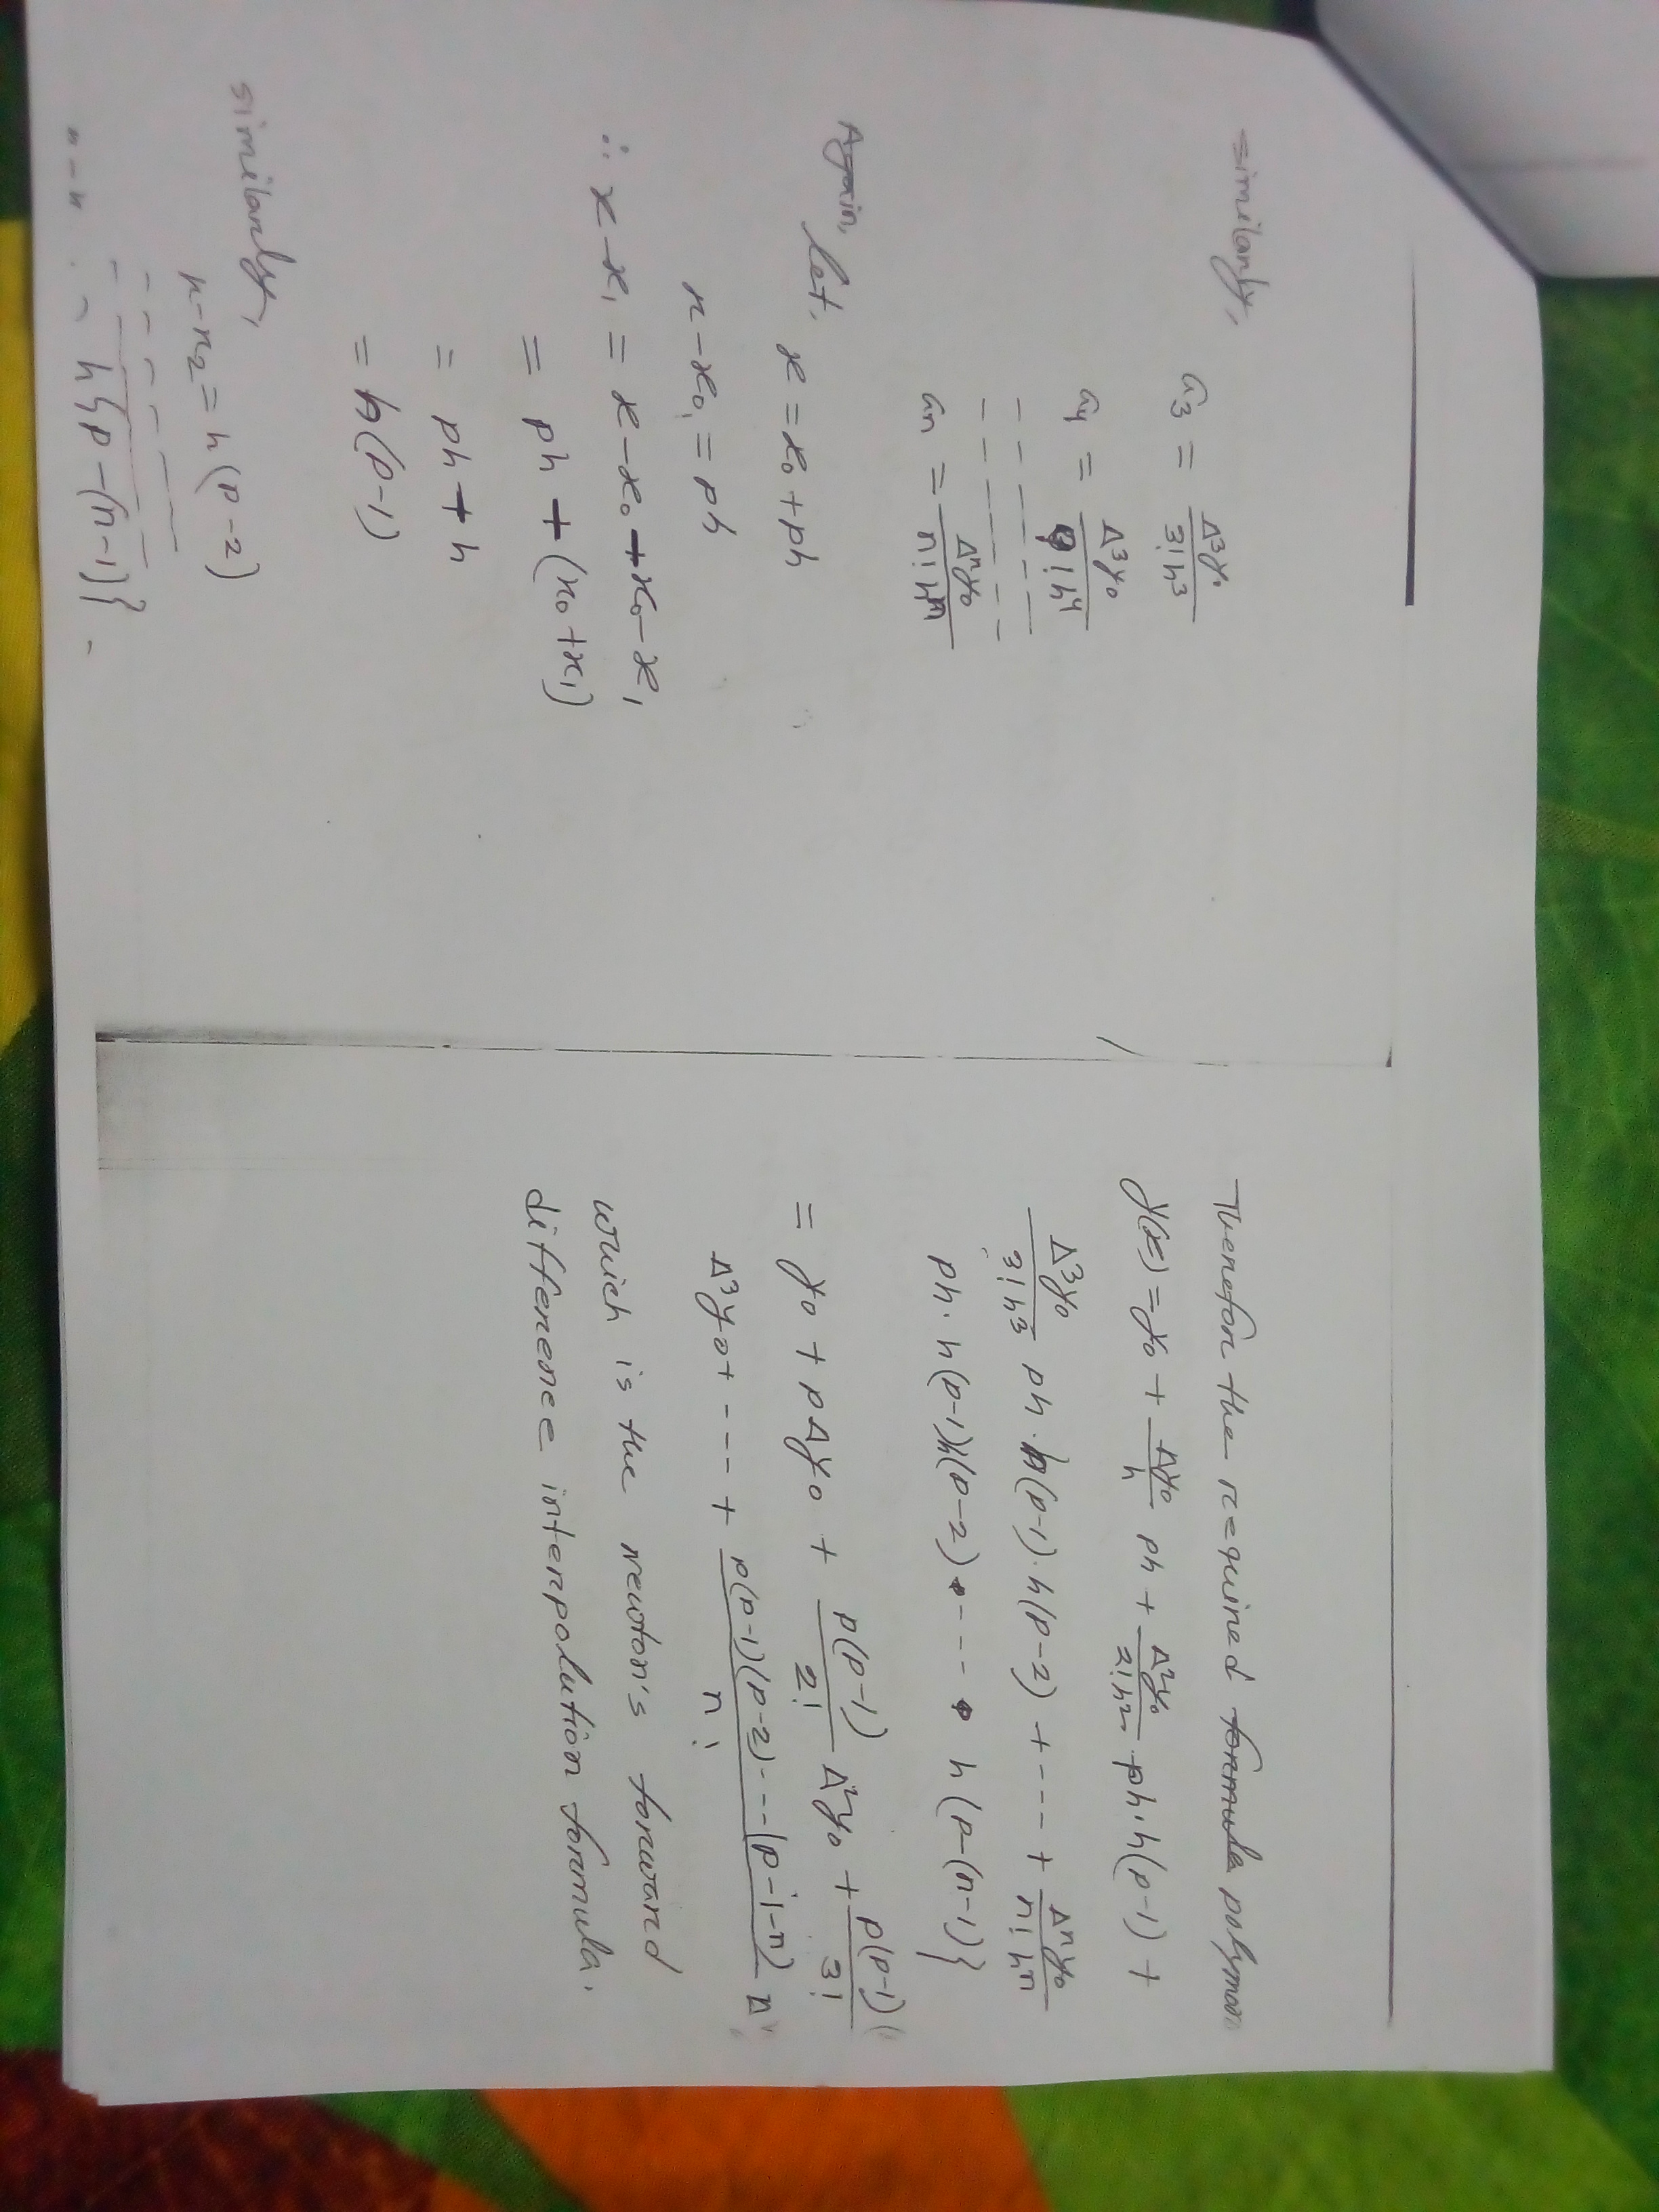 similarly,
a3 = Δ³y₀ / 3! h³
a4 = Δ³y₀ / 4! h⁴
an = Δⁿy₀ / n! hⁿ
Again, let,
x = x₀ + ph
x - x₀ = ph
∴ x - x₁ = x - x₀ + x₀ - x₁
= ph + (x₀ + x₁)
= ph + h
= h(p-1)
similarly,
x - x₂ = h(p-2)
h{p-(n-1)}
Therefor the required formula polynom
y(x) = y₀ + Δy₀/h ph + Δ²y₀/2! h² ph. h(p-1) +
Δ³y₀/3! h³ ph. h(p-1). h(p-2) + ---- + Δⁿy₀/n! hⁿ
ph. h(p-1)h(p-2) ---- h(p-(n-1)}
= y₀ + pΔy₀ + p(p-1)/2! Δ²y₀ + p(p-1)(/3!
Δ³y₀ + ---- + p(p-1)(p-2)---(p-1-n)/n! Δ
which is the newton's forward
difference interpolution formula.